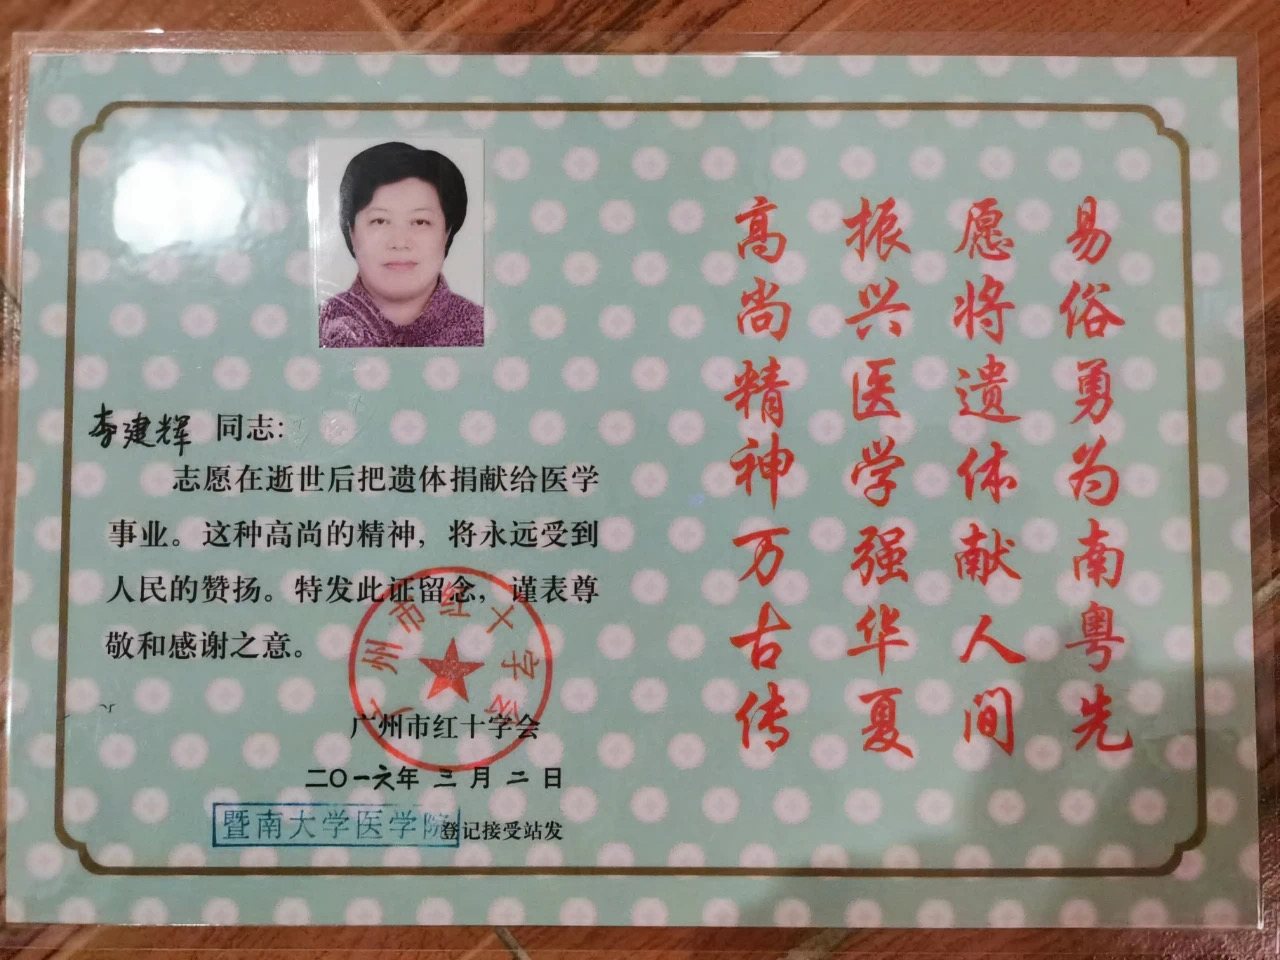 李建辉 同志：
志愿在逝世后把遗体捐献给医学
事业。这种高尚的精神，将永远受到
人民的赞扬。特发此证留念，谨表尊
敬和感谢之意。
广州市红十字会
广州市红十字会
二〇一六年 三 月 二 日
暨南大学医学院 登记接受站发
易俗勇为南粤先
愿将遗体献人间
振兴医学强华夏
高尚精神万古传